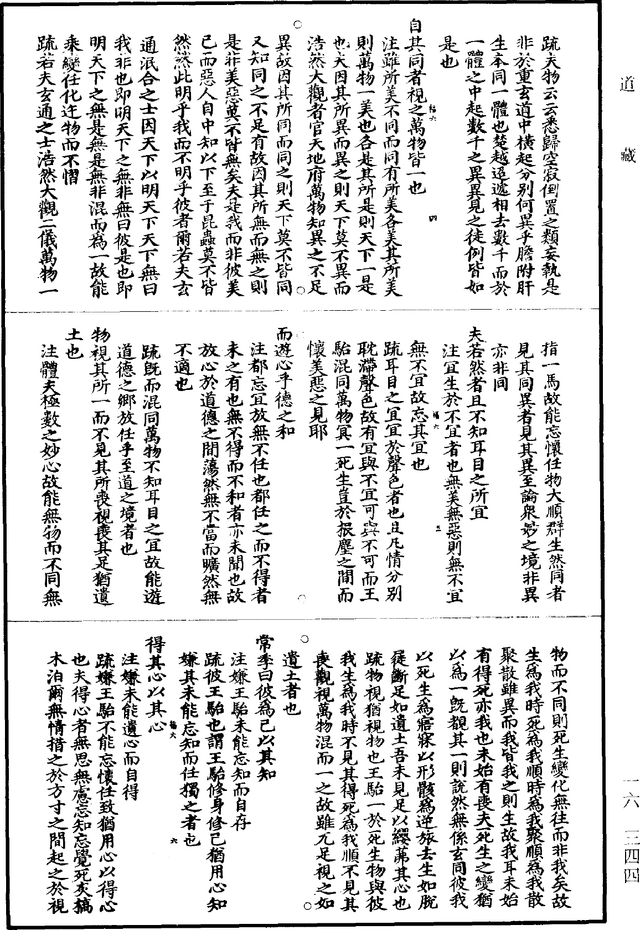 道藏
疏夫物云云悉歸空寂倒置之類妄執是
非於重玄道中橫起分別何異乎膽附肝
生本同一體也楚越迢遞相去數千而於
一體之中起數千之異異見之徒例皆如
是也
自其同者視之萬物皆一也
注雖所美不同而同有所美各美其所美
則萬物一美也各是其所是則天下一是
也夫因其所異而異之則天下莫不異而
浩然大觀者官天地府萬物知異之不足
異故因其所同而同之則天下莫不皆同
又知同之不足有故因其所無而無之則
是非美惡莫不皆無矣夫是我而非彼美
己而惡人自中知以下至于昆蟲莫不皆
然然此明乎我而不明乎彼者爾若夫玄
通泯合之士因天下以明天下天下無曰
我非也即明天下之無非無曰彼是也即
明天下之無是無是無非混而為一故能
乘變任化迕物而不慴
疏若夫玄通之士浩然大觀二儀萬物一
指一馬故能忘懷任物大順群生然同者
見其同異者見其異至論衆妙之境非異
亦非同
夫若然者且不知耳目之所宜
注宜生於不宜者也無美無惡則無不宜
無不宜故忘其宜也
疏耳目之宜宜於聲色者也且凡情分別
耽滯聲色故有宜與不宜可與不可而王
駘混同萬物冥一死生豈於根塵之間而
懷美惡之見耶
而遊心乎德之和
注都忘宜放無不任也都任之而不得者
未之有也無不得而不和者亦未聞也故
放心於道德之間蕩然無不當而曠然無
不適也
疏既而混同萬物不知耳目之宜故能遊
道德之鄉放任乎至道之境者也
物視其所一而不見其所喪視喪其足猶遺
土也
注體夫極數之妙心故能無物而不同無
物而不同則死生變化無往而非我矣故
生為我時死為我順時為我聚順為我散
聚散雖異而我皆我之則生故我耳未始
有得死亦我也未始有喪夫死生之變猶
以為一既覩其一則說然無係玄同彼我
以死生為寤寐以形骸為逆旅去生如脫
屣斷足如遺土吾未見足以纓茀其心也
疏物視猶視物也王駘一於死生物與彼
我生為我時不見其得死為我順不見其
喪觀視萬物混而一之故雖兀足視之如
遺土者也
常季曰彼為己以其知
注嫌王駘未能忘知而自存
疏彼王駘也謂王駘修身修己猶用心知
嫌其未能忘知而任獨之者也
得其心以其心
注嫌未能遺心而自得
疏嫌王駘不能忘懷任致猶用心以得心
也夫得心者無思無慮忘知忘覺死灰槁
木泊爾無情措之於方寸之間起之於視
一六 三四四